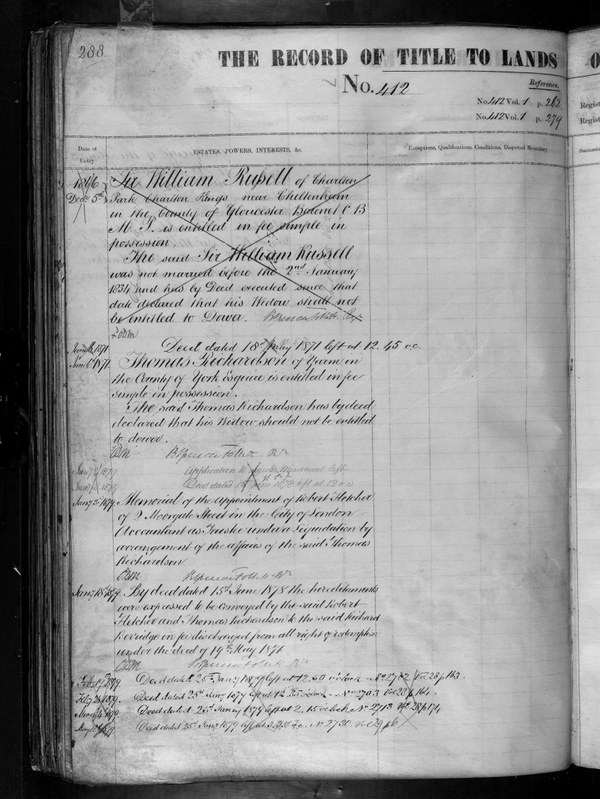 288
THE RECORD OF TITLE TO LANDS
No. 412
Reference.
No. 412 Vol. 1 p. 262
No. 412 Vol. 1 p. 279
Date of Entry
ESTATES, POWERS, INTERESTS, &c.
Exceptions, Qualifications, Conditions, Disputed Boundary
Decr 5th
Sir William Russell of Charlton
Park Charlton Kings near Cheltenham
in the County of Gloucester Baronet C B
M P. is entitled in fee simple in
possession
The said Sir William Russell
was not married before the 2nd January
1834 and has by Deed executed since that
date declared that his Widow shall not
be entitled to Dower.
Deed dated 18th May 1871 left at 12.45 o.c.
Thomas Richardson of Yarm in
the County of York Esquire is entitled in fee
simple in possession.
The said Thomas Richardson has by deed
declared that his Widow should not be entitled
to dower.
Jany 1879
Application to
Deed dated left at 12 o.c
Jany 1879 Memorial of the appointment of Robert Fletcher
of 2 Moorgate Street in the City of London
Accountant as Trustee under a Liquidation by
arrangement of the affairs of the said Thomas
Richardson
Jany 18th 1879 By deed dated 15th June 1878 the hereditaments
were expressed to be conveyed by the said Robert
Fletcher and Thomas Richardson to the said Richard
in fee discharged from all right of redemption
under the deed of 19th May 1871
Feby 1879 Deed dated 25th Jany 1879 left at 12.30 o'clock No 2702 Vol 28 p 163.
Feby 1879. Deed dated 25th Jany 1879 left at o'clock No 2703 Vol 28 p 164.
1879 Deed dated 25th Jany 1879 left at 2.15 o'clock No 2713 Vol 28 p 174
1879 Deed dated 25 Jany 1879 left at No 2730 Vol 29 p 6